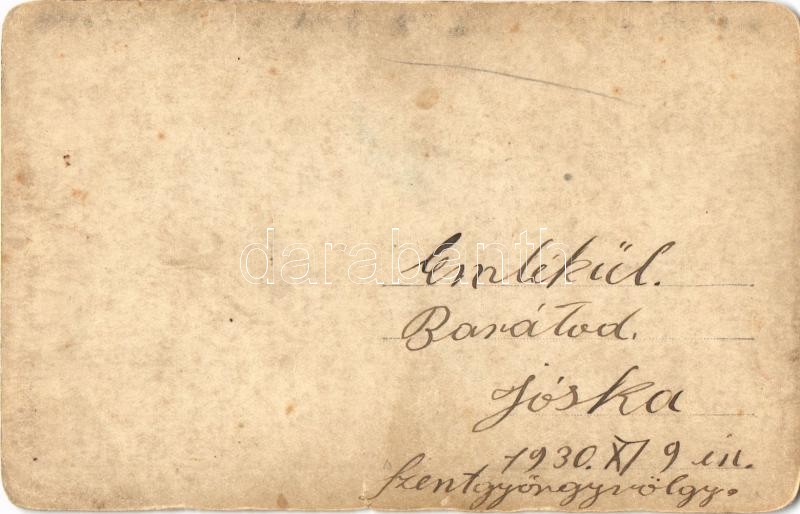 Emlékül.
Barátod.
Jóska
1930. XI 9 én.
Szentgyörgyvölgy.
darabanth